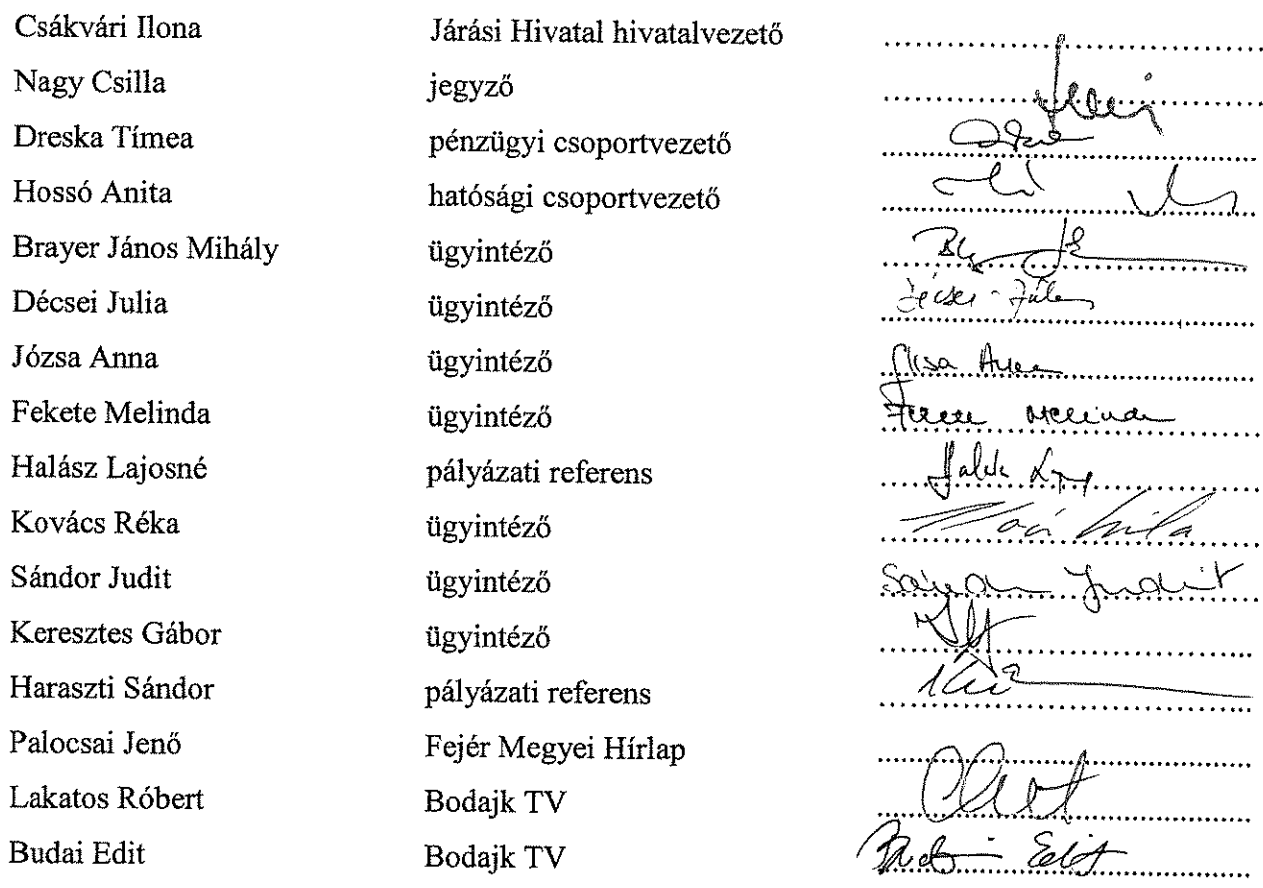 Csákvári Ilona Járási Hivatal hivatalvezető
Nagy Csilla jegyző
Dreska Tímea pénzügyi csoportvezető
Hossó Anita hatósági csoportvezető
Brayer János Mihály ügyintéző
Décsei Julia ügyintéző
Józsa Anna ügyintéző
Fekete Melinda ügyintéző Fekete Melinda
Halász Lajosné pályázati referens
Kovács Réka ügyintéző
Sándor Judit ügyintéző Sándor Judit
Keresztes Gábor ügyintéző
Haraszti Sándor pályázati referens
Palocsai Jenő Fejér Megyei Hírlap
Lakatos Róbert Bodajk TV
Budai Edit Bodajk TV Budai Edit